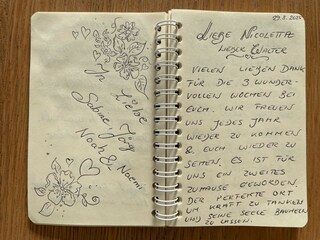 In Liebe
Sabine, Jögi
Noah & Naemi
29.8.2025
LIEBE NICOLETTA
LIEBER WALTER
VIELEN LIEBEN DANK
FÜR DIE 3 WUNDER-
VOLLEN WOCHEN BEI
EUCH. WIR FREUEN
UNS JEDES JAHR
WIEDER ZU KOMMEN
& EUCH WIEDER ZU
SEHEN. ES IST FÜR
UNS EIN ZWEITES
ZUHAUSE GEWORDEN.
DER PERFEKTE ORT
UM KRAFT ZU TANKEN
UND SEINE SEELE BAUMELN
ZU LASSEN.